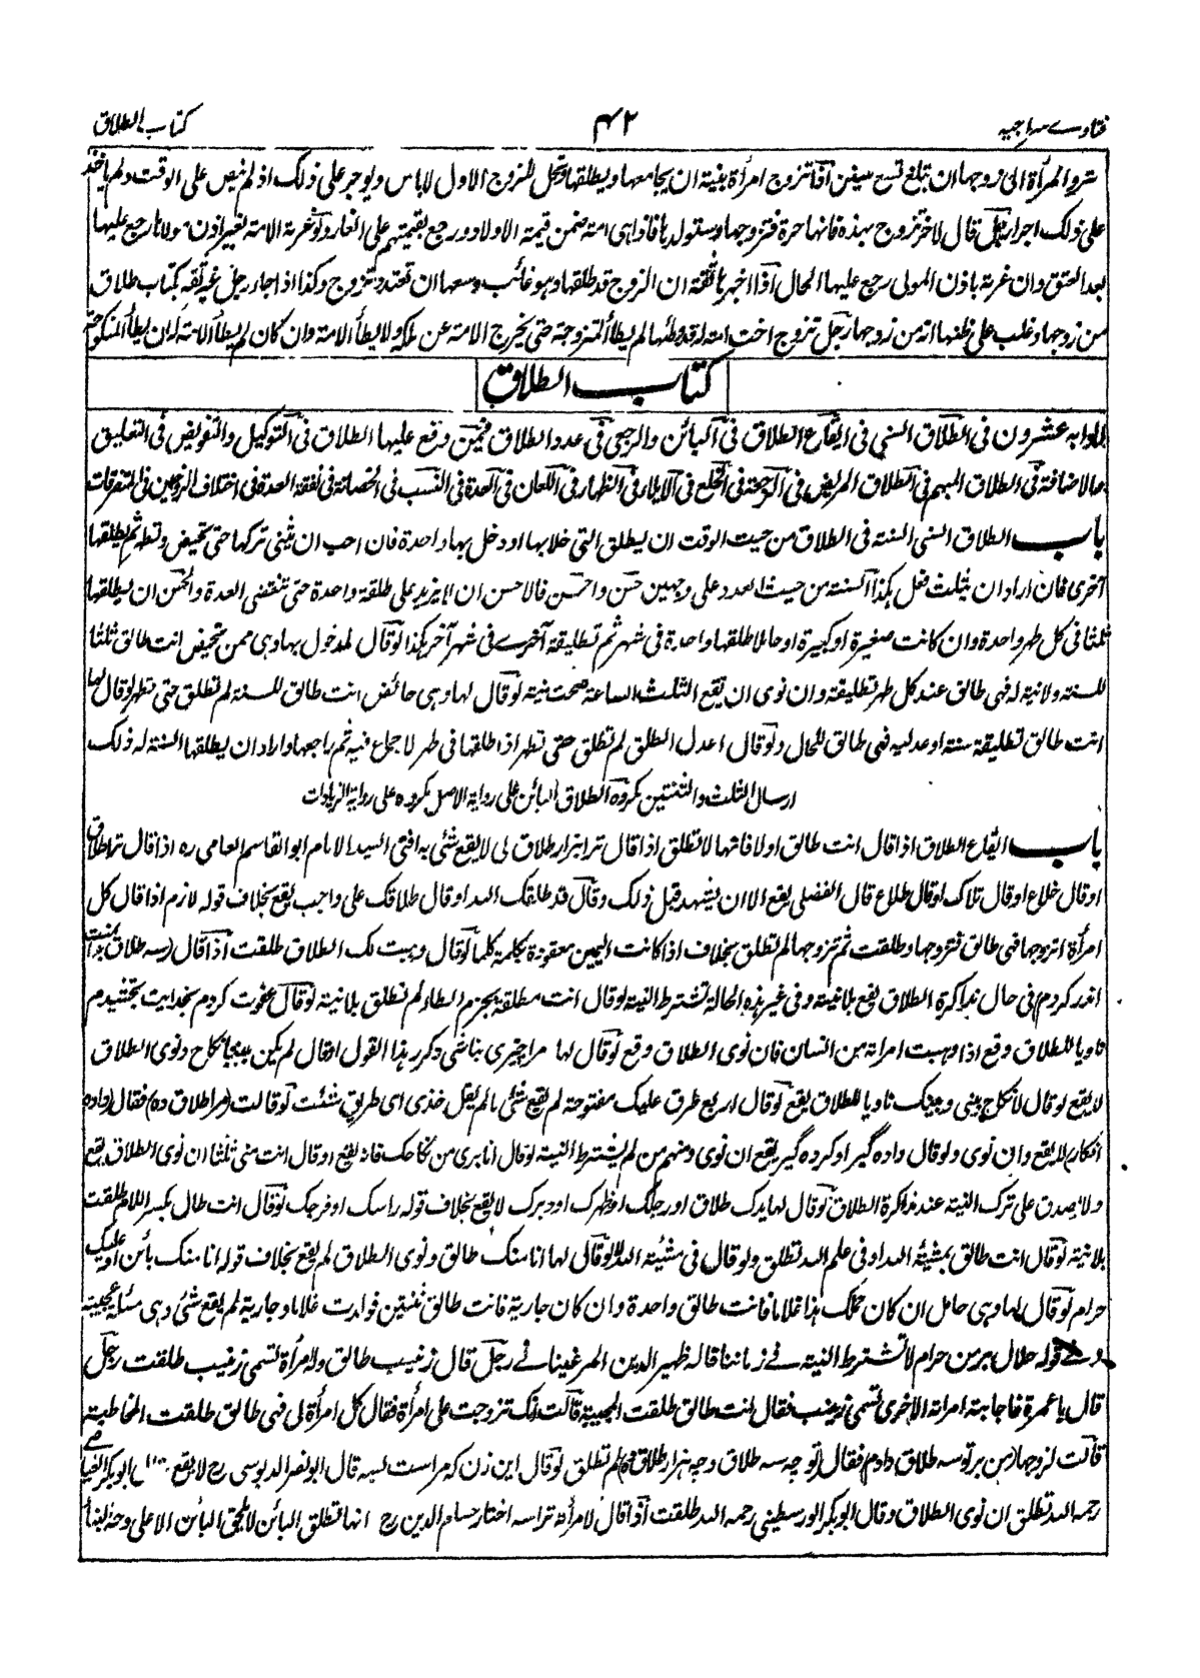 فتاوے سراجیہ ۴۲ کتاب الطلاق
ترد المرأة الى زوجها ان تبلغ تسع سنين اذا تزوج امرأة بنية ان يجامعها ويطلقها وتحل للزوج الاول لا باس ويوجر على ذلك اذ لم ينص على الوقت ولم ياخذ
على ذلك اجرا رجل قال لاخر تزوج بهذه فانها حرة فتزوجها وستولدها فاذا هى امة ضمن قيمة الاولاد ورجع بقيمتهم على الغار ولو غرته الامة بغير اذن مولاها رجع عليها
بعد العتق وان غرته باذن المولى رجع عليها الحال اذا اخبرها ثقة ان الزوج قد طلقها وهو غائب وسعها ان تعتد وتتزوج وكذا اذا جاء رجل غير ثقة بكتاب طلاق
من زوجها وغلب على ظنها انه من زوجها رجل تزوج اخت امته له قد وطئها لم يطأ المتزوجة حتى يخرج الامة عن ملكه ولا يطأ الامة وان كان لم يطأ الامة له ان يطأ المنكوحة
کتاب الطلاق
ابوابه عشرون فى الطلاق السنى فى ايقاع الطلاق فى البائن والرجعى فى عدد الطلاق فيمن وقع عليها الطلاق فى التوكيل والتفويض فى التعليق
والاضافة فى الطلاق المبهم فى الطلاق المريض فى الرجعة فى الخلع فى الايلاء فى الظهار فى اللعان فى العدة فى النسب فى الحضانة فى نفقة العدة فى اختلاف الزوجين فى المتفرقات
باب الطلاق السنى السنة فى الطلاق من حيث الوقت ان يطلق التى خلا بها او دخل بها واحدة فان احب ان يثنى تركها حتى تحيض وتطهر ثم يطلقها
اخرى فان اراد ان يثلث فعل هكذا السنة من حيث العدد على وجهين حسن واحسن فالاحسن ان لا يزيد على طلقة واحدة حتى تنقضى العدة والحسن ان يطلقها
ثلثا فى كل طهر واحدة وان كانت صغيرة او كبيرة او حاملا طلقها واحدة فى شهر ثم تطليقة اخرے فى شهر آخر هكذا لو قال لمدخول بها وهى ممن تحيض انت طالق ثلثا
للسنة ولا نية له فهى طالق عند كل طهر تطليقة وان نوى ان تقع الثلث الساعة صحت نيته لو قال لها وهى حائض انت طالق للسنة لم تطلق حتى تطهر لو قال لها
انت طالق تطليقة سنة او عدلية فهى طالق للحال ولو قال اعدل الطلاق لم تطلق حتى تطهر اذا طلقها فى طهر لا جماع فيه ثم راجعها واراد ان يطلقها السنة له ذلك
ارسال الثلث والثنتين مكروه الطلاق البائن على رواية الاصل مكروه على رواية الزيادات
باب ايقاع الطلاق اذا قال انت طالق او لا فانها لا تطلق اذا قال ترا هزار طلاق لى لا يقع شئى به افتى السيد الامام ابو القاسم العامى ره اذا قال ترا طلاق
او قال خلاع او قال تلاك او قال طلاع قال الفضلى يقع الا ان يشهد قبل ذلك وقال قد طلقك الله او قال طلاقك على واجب يقع بخلاف قوله لازم اذا قال كل
امرأة اتزوجها فهى طالق فتزوجها وطلقت ثم تزوجها لم تطلق بخلاف اذا كانت اليمين معقودة بكلمة كلما لو قال وهبت لك الطلاق طلقت اذا قال (سه طلاق بدامنت
اندر كردم) فى حال مذاكرة الطلاق يقع بلا نية وفى غير هذه الحالة تشترط النية لو قال انت مطلقة بجزم الطاء لم تطلق بلا نية لو قال عفوت كردم بخدايت بخشيدم
ناويا للطلاق وقع اذا وهبت امراته من انسان فان نوى الطلاق وقع لو قال لها مرا چيزى نباشى وكرر هذا القول او قال لم يكن بيننا نكاح ونوى الطلاق
لا يقع لو قال لا نكاح بينى وبينك ناويا للطلاق يقع لو قال اربع طرق عليك مفتوحة لم يقع شئ ما لم يقل خذى اى طريق شئت لو قالت (مرا طلاق ده) فقال (داده
انگار) لا يقع وان نوى ولو قال داده گير او كرده گير يقع ان نوى ومنهم من لم يشترط النية لو قال انا برى من نكاحك فانه يقع او قال انت منى ثلثا ان نوى الطلاق يقع
ولا يصدق على ترك النية عند مذاكرة الطلاق لو قال لها يدك طلاق او رجلك او ظهرك او دبرك لا يقع بخلاف قوله راسك او فرجك لو قال انت طال بكسر اللام طلقت
بلا نية لو قال انت طالق بمشيئة الله او فى علم الله تطلق ولو قال فى مشيئة الله لا لو قال لها انا منك طالق ونوى الطلاق لم يقع بخلاف قوله انا منك بائن او عليك
حرام لو قال لها وهى حامل ان كان حملك هذا غلاما فانت طالق واحدة وان كان جارية فانت طالق ثنتين فولدت غلاما وجارية لم يقع شئ وهى مسئلة عجيبة
وفے قوله حلال بر من حرام لا تشترط النية فے زماننا قاله ظهير الدين المرغينانے رجل قال زينب طالق وله امرأة تسمى زينب طلقت رجل
قال يا عمرة فاجابته امراته الاخرى تسمى زينب فقال انت طالق طلقت المجيبة قالت انك تزوجت على امرأة فقال كل امرأة لى فهى طالق طلقت المخاطبة
قالت لزوجها من بر تو سه طلاق دادم فقال (تو چه سه طلاق وچه هزار طلاق) لم تطلق لو قال اين زن كه مراست بسه قال ابو نصر الدبوسى رح لا يقع ابو بكر العياضے
رحمه الله تطلق ان نوى الطلاق وقال ابو بكر الورسطينى رحمه الله طلقت اذا قال لامرأته تراسه اختار حسام الدين رح انها تطلق البائن لا يلحق البائن الا على وجه